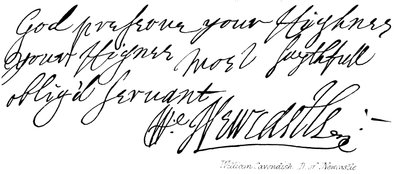 God preserve your Highnes
your Highnes most faythfull
oblig'd servant
We Newcastle :-
William Cavendish D. of Newcastle